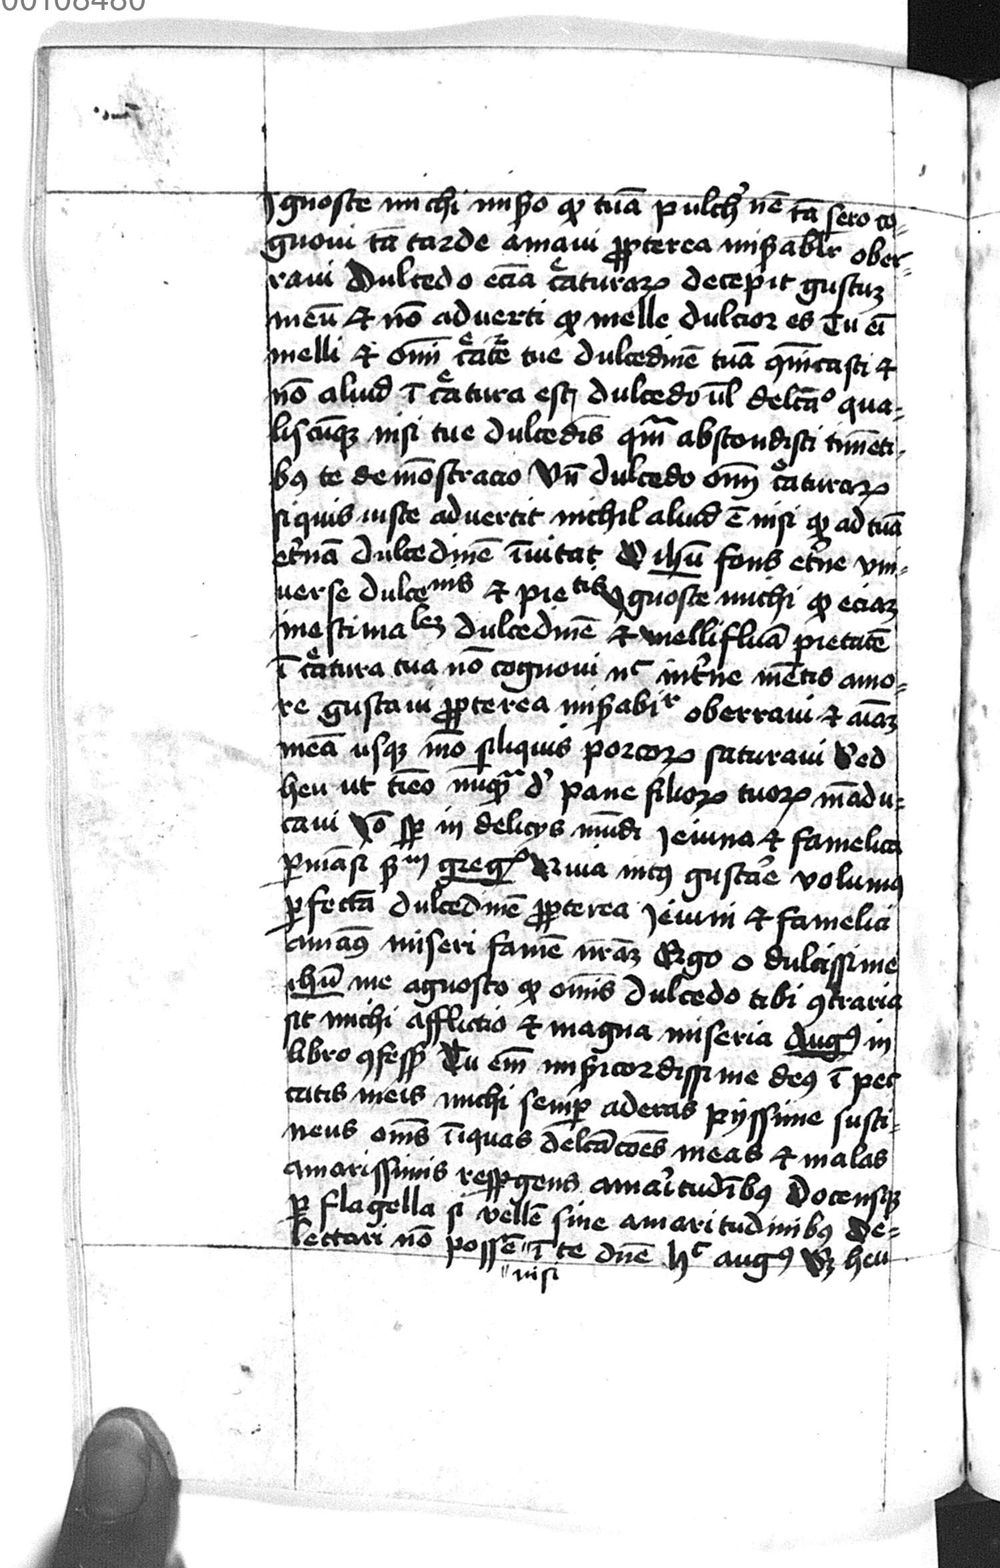 00108480
Ignosce michi misero quod tuã pulchnẽ tã sero co-
gnoui tã tarde amaui propterea mirabilr ober-
raui Dulcedo eciã creaturarꝝ decepit gustuꝫ
meũ & nõ aduerti quod melle dulcior es Tu eĩ
melli & omĩ creature tue dulcedinẽ tuã &
nõ aliud ĩ creatura est dulcedo ul̃ delctãᵒ qua-
liscũqꝫ nisi tue dulcedĩs qm̃ abscondisti timẽti-
bꝰ te demõstracio Vñ dulcedo omĩ creaturarꝝ
si quis iuste aduertit nichil aliud ẽ nisi quod ad tuã
etr̃nã dulcedinẽ ĩuitat O ihũ fons etr̃ne vni-
uerse dulcenis & pietatis Ignosce michi quod eciaꝫ
inestimaleꝫ dulcedinẽ & mellifluã pietatẽ
ĩ creatura tua nõ cognoui nᶜ int̃ne mẽtis amo-
re gustaui propterea mirabilr oberraui & aĩaꝫ
meã usqꝫ mõ siliquis porcorꝝ saturaui Sed
heu ut tĩeo nũqᵃ dᵉ pane filiorꝝ tuorꝝ mãdu-
caui sꝫ semper in delicijs mũdi Ieiuna & famelica
p̱mãsit gregᵒ intꝰ gustare volumꝰ
ꝑfectã dulcedinẽ propterea Ieiuni & famelici
amamꝰ miseri famẽ nr̃aꝫ Ergo o dulcissime
ihũ me agnosco quod omĩs dulcedo tibi ꝯtraria
sit michi afflictio & magna miseria Augꝰ in
libro ꝯfess Tu em̃ misericordissime deꝰ ĩ pec
catis meis michi semꝑ aderas pijssime susti-
nens oms ĩiquas delctãcões meas & malas
amarissimis respergens amaritudĩbꝰ Docensqꝫ
ꝑ flagella si vellẽ sine amaritudinibꝰ De-
lectari nõ possẽ " ĩ te dñe hᶜ augꝰ Sꝫ heu
" nisi